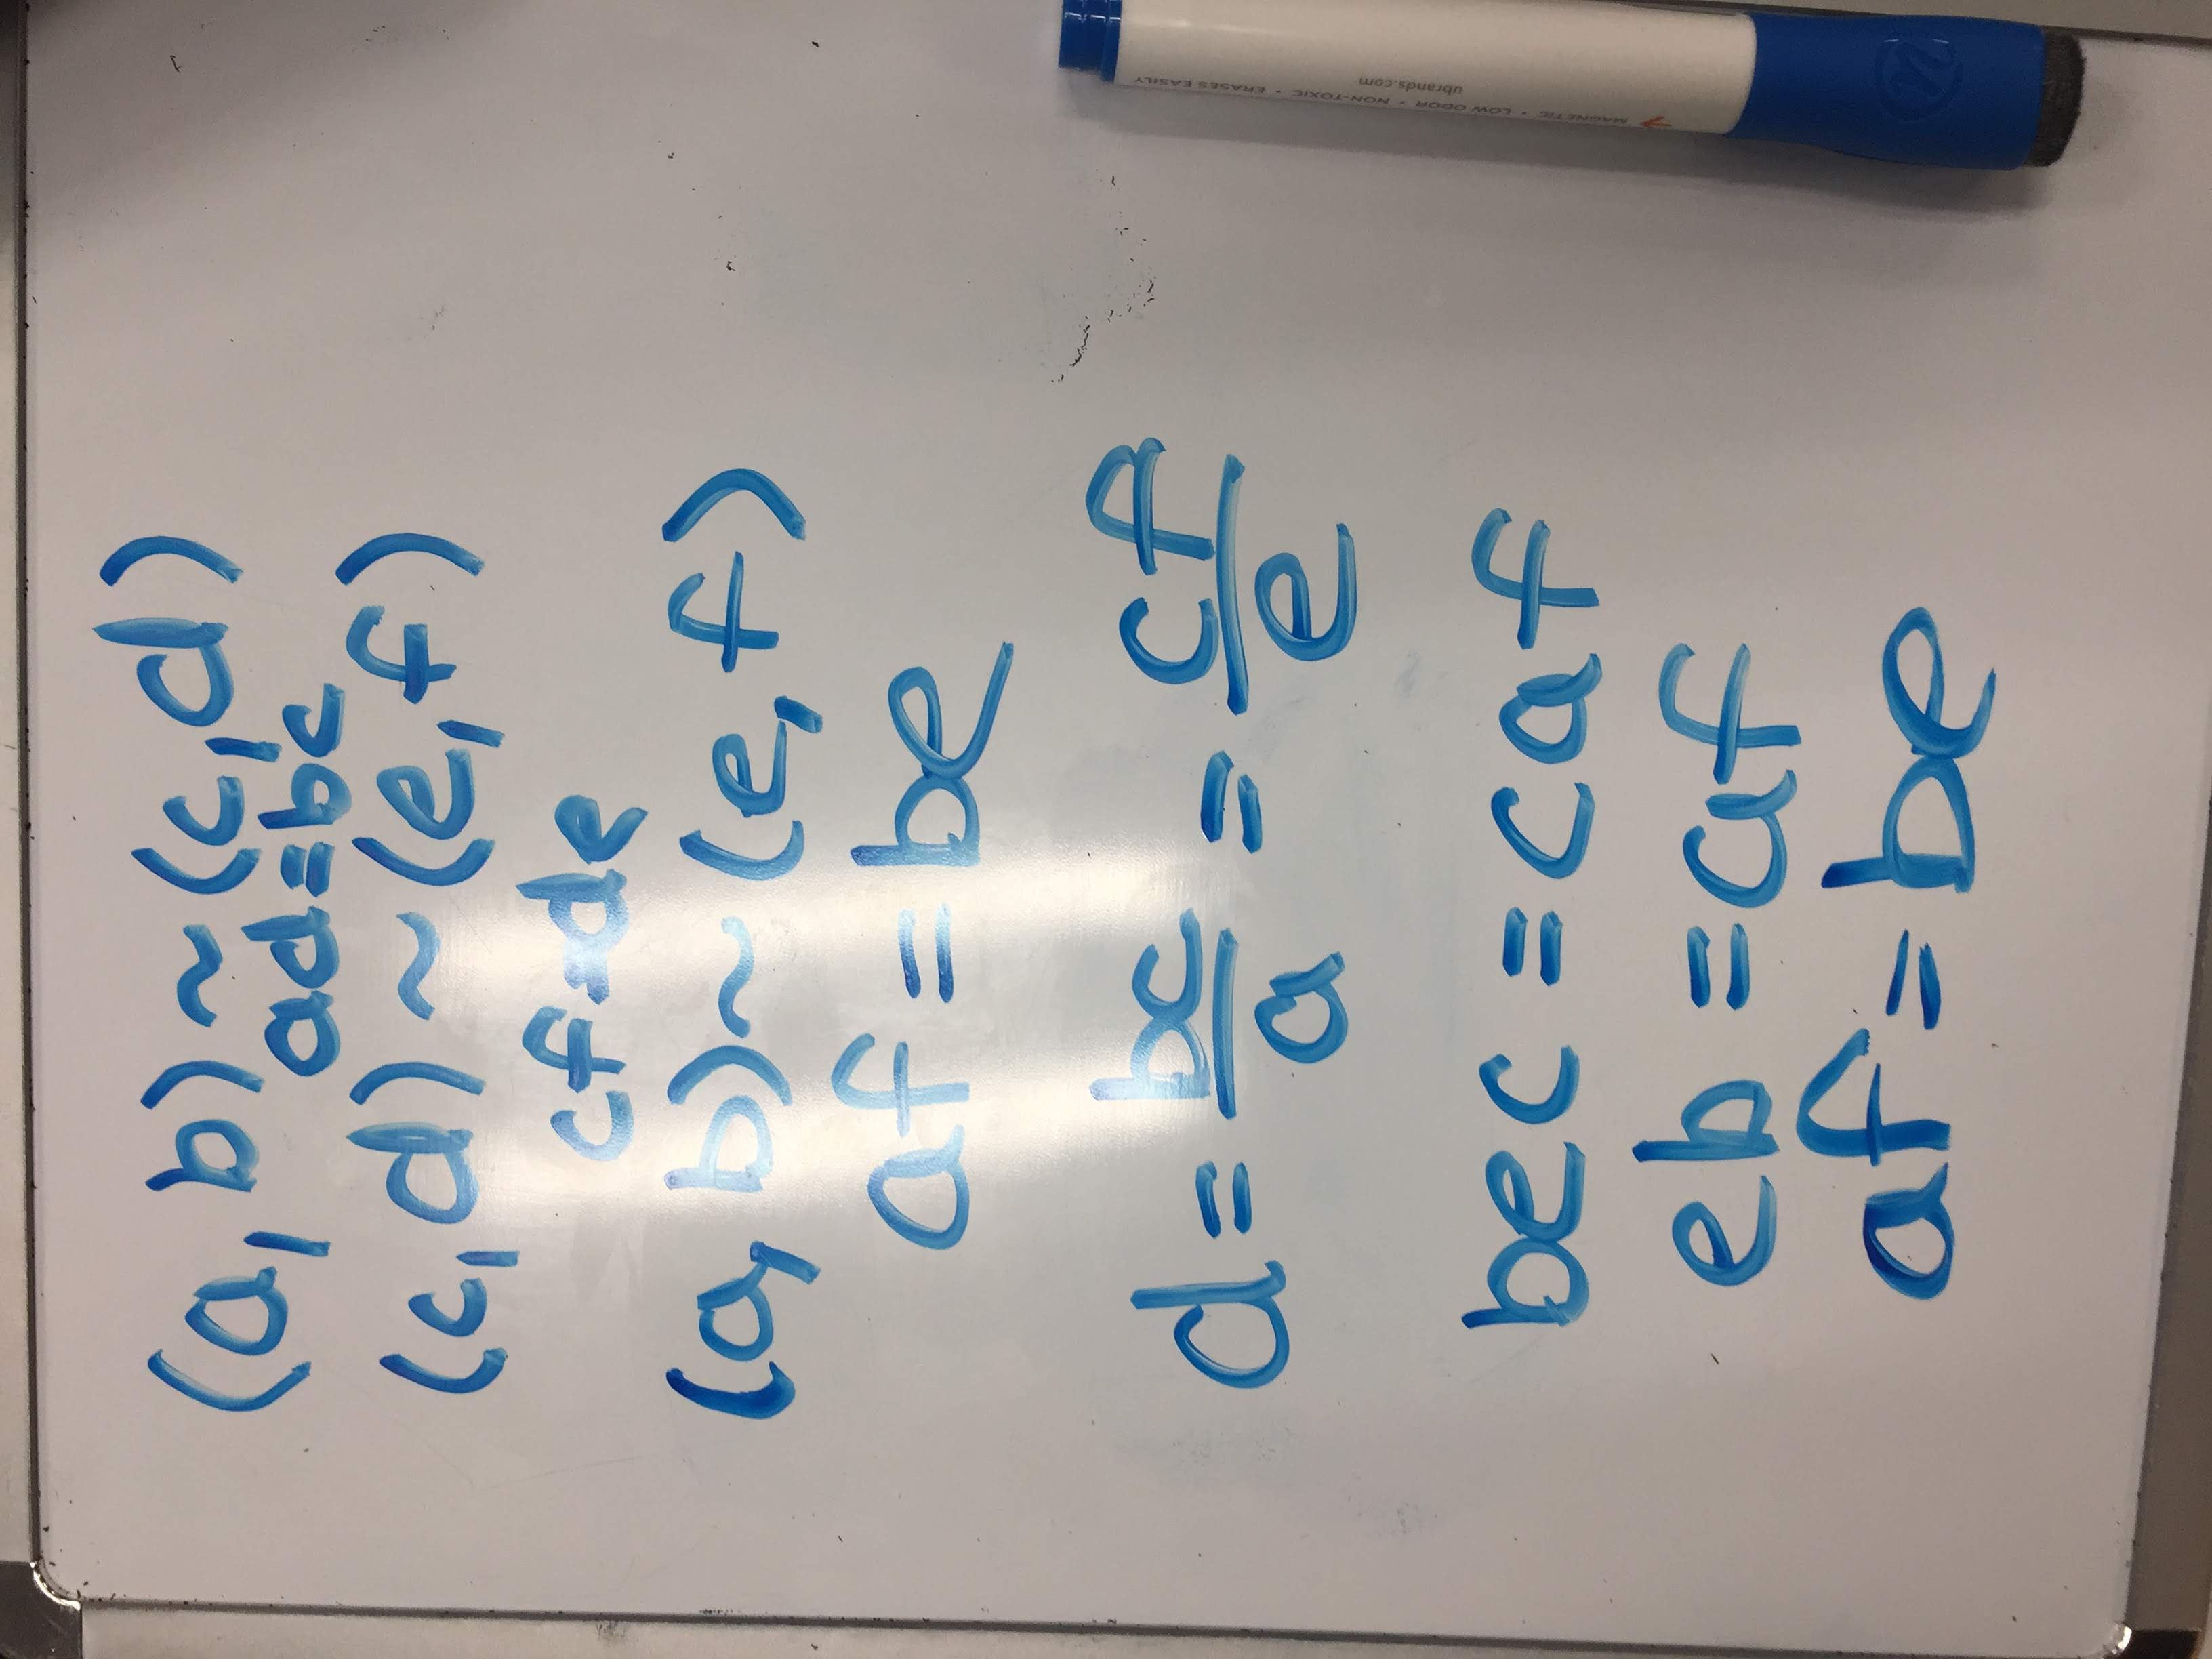 (a, b) ~ (c, d)
ad = bc
(c, d) ~ (e, f)
cf = de
(a, b) ~ (e, f)
af = be
d = bc/a = cf/e
bec = caf
eb = af
af = be
MAGNETIC • LOW ODOR • NON-TOXIC • ERASES EASILY
ubrands.com